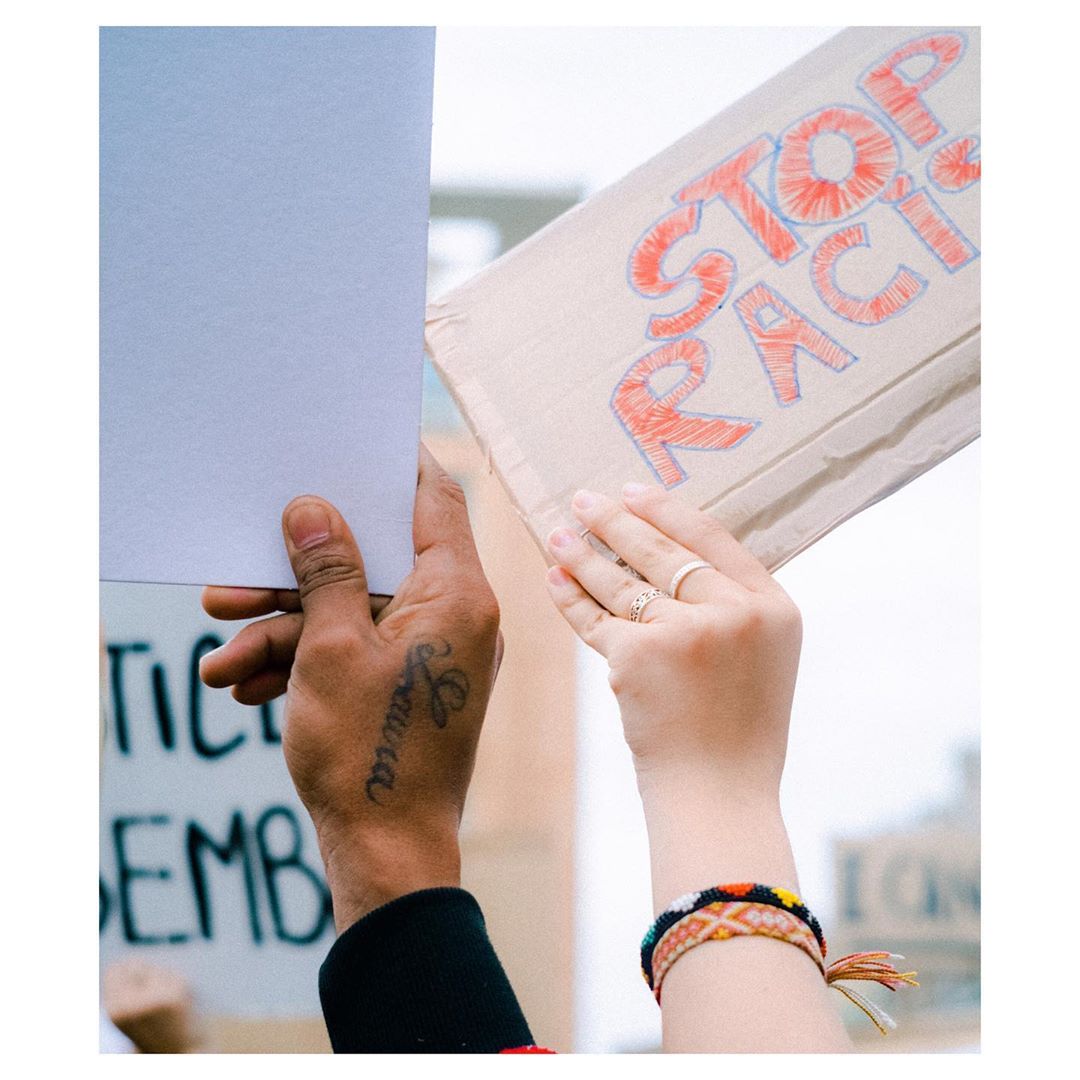 STOP
RACiS
TICE
EMB
I CAN